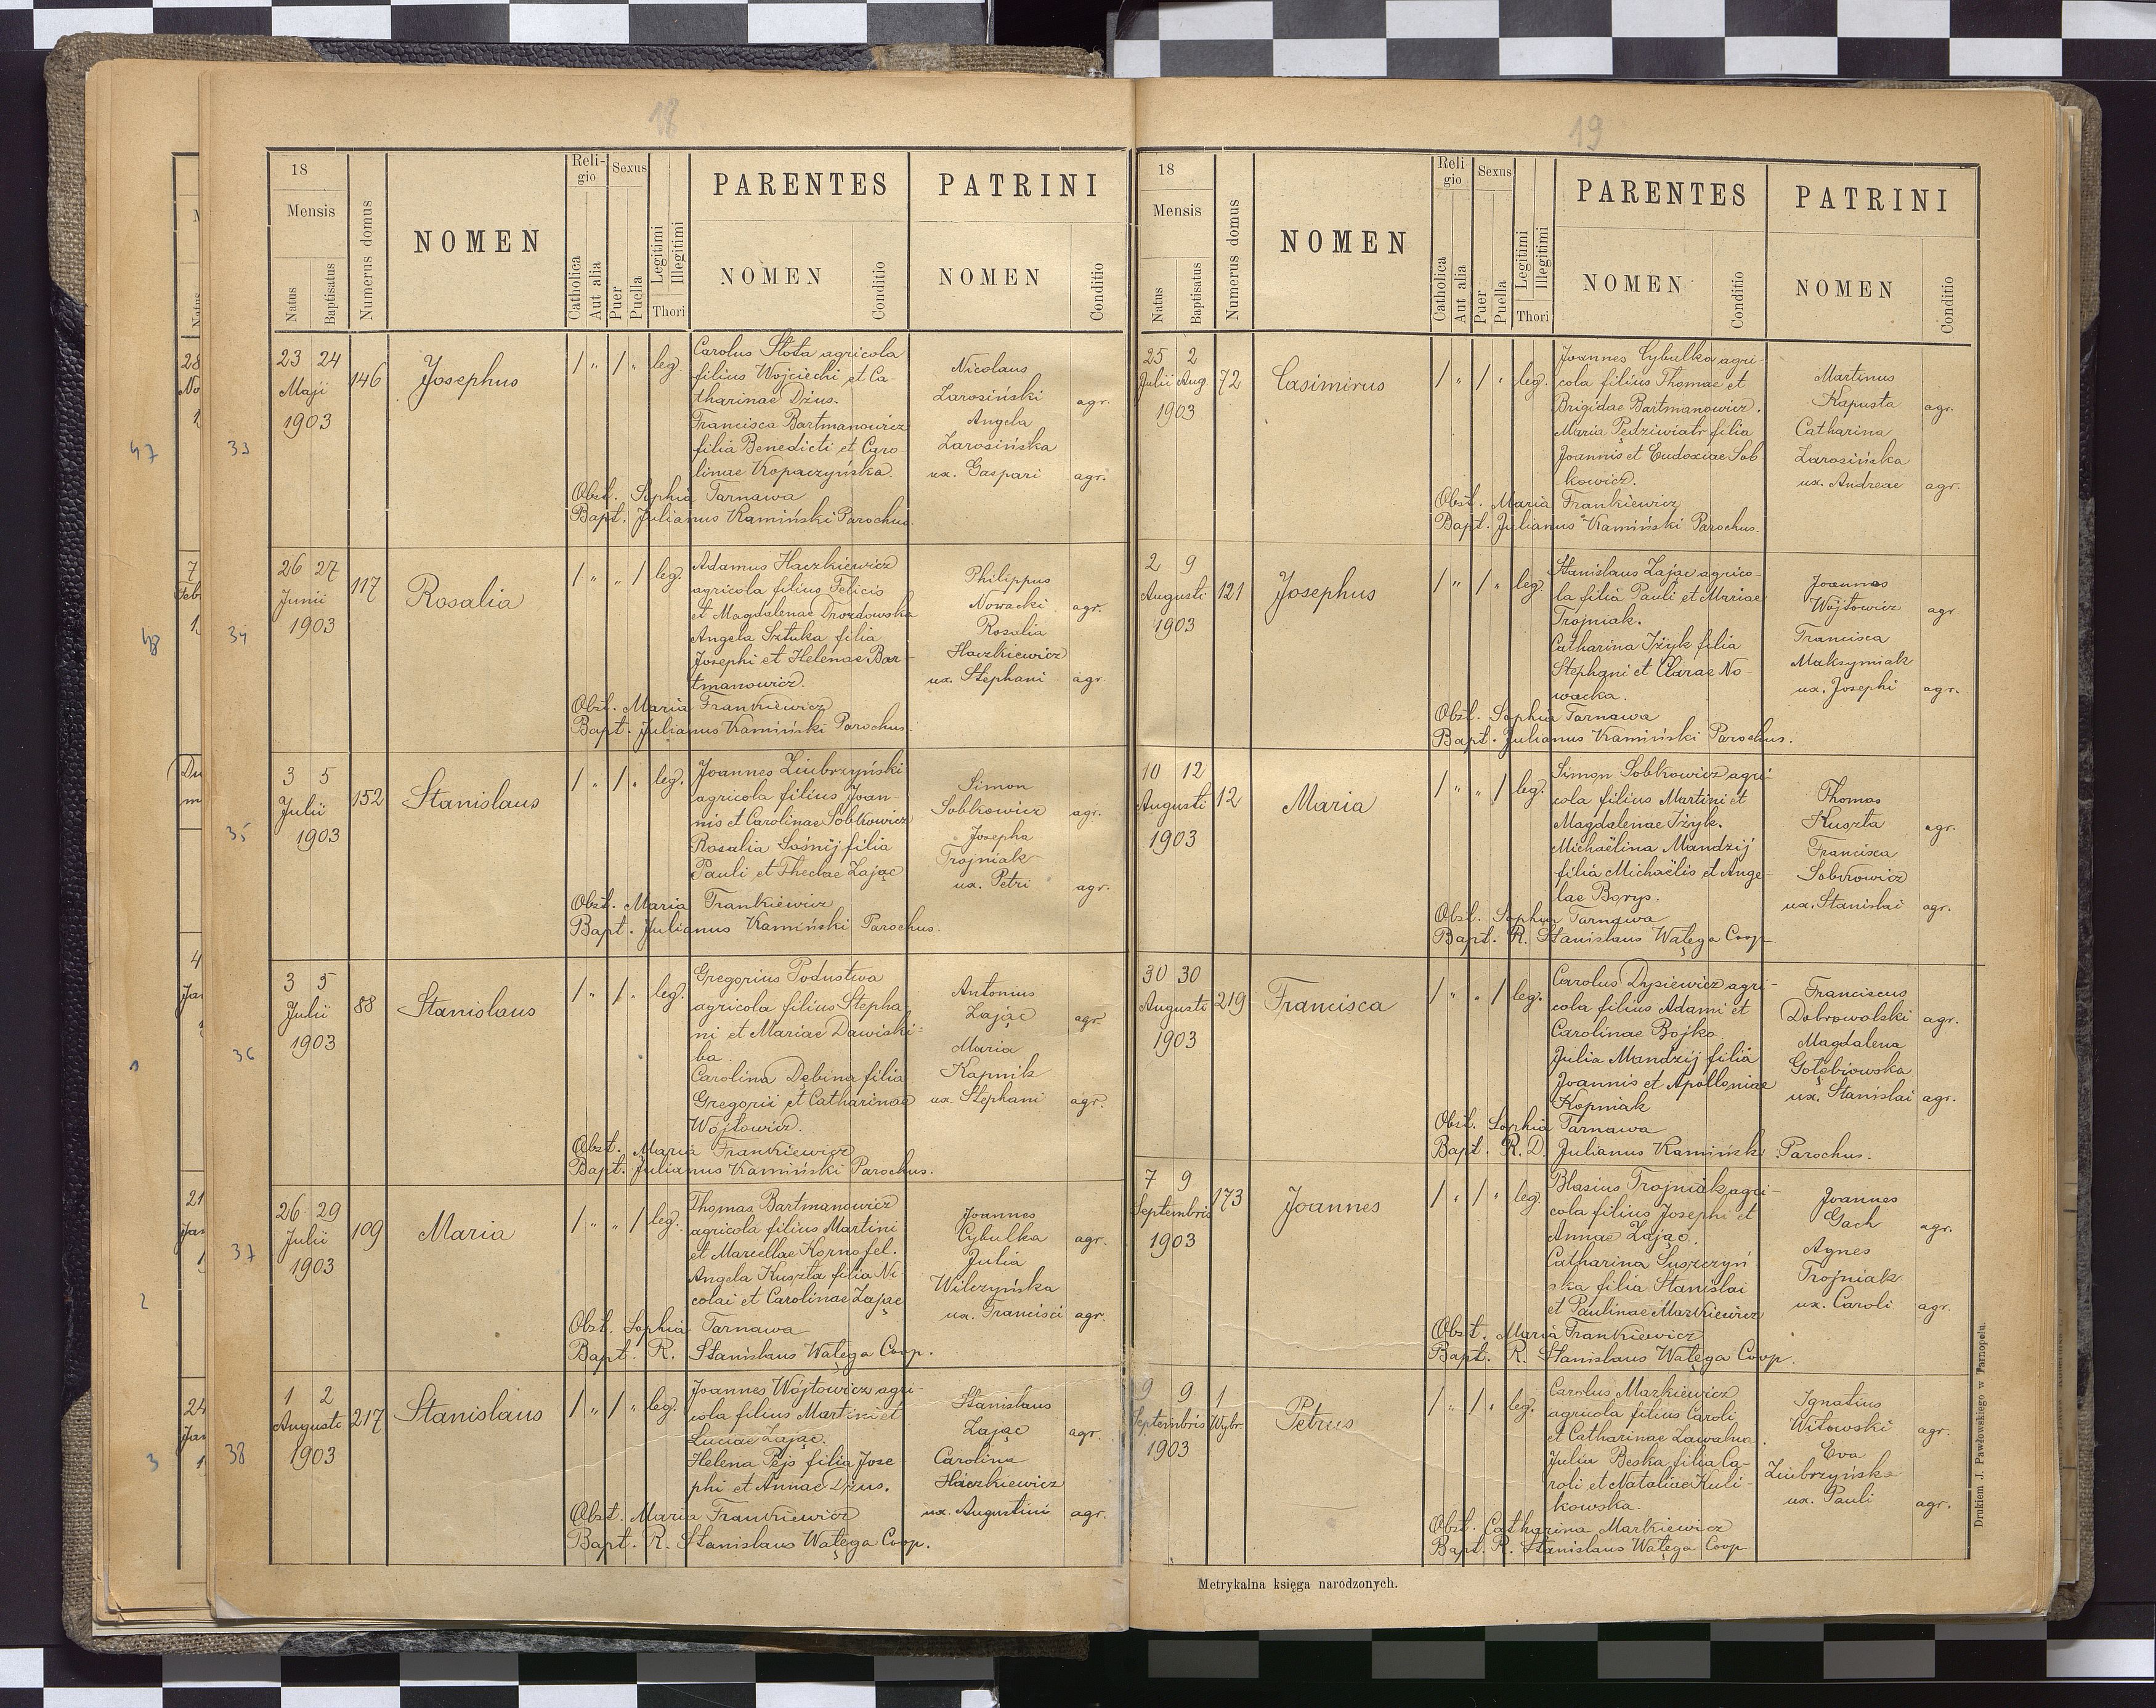 18
18
Mensis
Natus
Baptisatus
Numerus domus
NOMEN
Religio
Catholica
Aut alia
Sexus
Puer
Puella
Legitimi
Illegitimi
Thori
PARENTES
NOMEN
Conditio
PATRINI
NOMEN
Conditio
33
23 24
Maji
1903
146
Josephus
/ " / " leg.
Carolus Słota agricola
filius Wojciechi et Ca-
tharinae Dżus.
Francisca Bartmanowicz
filia Benedicti et Caro
linae Kopaczyńska
Nicolaus
Zarosiński agr.
Angela
Zarosińska
ux. Gaspari agr.
Obst. Sophia Tarnawa
Bapt. Julianus Kamiński Parochus.
34
26 27
Junii
1903
117
Rosalia
/ " " / leg.
Adamus Haczkiewicz
agricola filius Felicis
et Magdalenae Drozdowska
Angela Sztuka filia
Josephi et Helenae Bar-
tmanowicz.
Philippus
Nowacki agr.
Rosalia
Haczkiewicz
ux. Stephani agr.
Obst. Maria Frankiewicz
Bapt. Julianus Kamiński Parochus.
35
3 5
Julii
1903
152
Stanislaus
/ " / " leg.
Joannes Ziubrzyński
agricola filius Joan-
nis et Carolinae Sobkowicz
Rosalia Sośnij filia
Pauli et Theclae Zając
Simon
Sobkowicz agr.
Josepha
Trojniak
ux. Petri agr.
Obst. Maria Frankiewicz
Bapt. Julianus Kamiński Parochus.
36
3 5
Julii
1903
88
Stanislaus
/ " / " leg.
Gregorius Podustwa
agricola filius Stepha
ni et Mariae Dawiski-
ba.
Carolina Dębina filia
Gregorii et Catharinae
Wójtowicz.
Antonius
Zając agr.
Maria
Kapnik
ux. Stephani agr.
Obst. Maria Frankiewicz
Bapt. Julianus Kamiński Parochus.
37
26 29
Julii
1903
109
Maria
/ " " / leg.
Thomas Bartmanowicz
agricola filius Martini
et Marcellae Kornofel.
Angela Kuszta filia Ni
colai et Carolinae Zając
Joannes
Cybulka agr.
Julia
Wilczyńska
ux. Francisci agr.
Obst. Sophia Tarnawa
Bapt. R. Stanislaus Wałęga Coop.
38
1 2
Augusti
1903
217
Stanislaus
/ " / " leg.
Joannes Wójtowicz agri-
cola filius Martini et
Luciae Zając.
Helena Pejs filia Jose
phi et Annae Dżus.
Stanislaus
Zając agr.
Carolina
Haczkiewicz
ux. Augustini agr.
Obst. Maria Frankiewicz
Bapt. R. Stanislaus Wałęga Coop.
19
18
Mensis
Natus
Baptisatus
Numerus domus
NOMEN
Religio
Catholica
Aut alia
Sexus
Puer
Puella
Legitimi
Illegitimi
Thori
PARENTES
NOMEN
Conditio
PATRINI
NOMEN
Conditio
25 2
Julii Aug.
1903
72
Casimirus
/ " / " leg.
Joannes Cybulka agri-
cola filius Thomae et
Brigidae Bartmanowicz.
Maria Pędziwiatr filia
Joannis et Eudoxiae Sob
kowicz.
Martinus
Kapusta agr.
Catharina
Zarosińska
ux. Andreae agr.
Obst. Maria Frankiewicz
Bapt. Julianus Kamiński Parochus.
2 9
Augusti
1903
121
Josephus
/ " / " leg.
Stanislaus Zając agrico-
la filia Pauli et Mariae
Trojniak.
Catharina Iżyk filia
Stephani et Clarae No-
wacka.
Joannes
Wójtowicz agr.
Francisca
Maksymiak
ux. Josephi agr.
Obst. Sophia Tarnawa
Bapt. Julianus Kamiński Parochus.
10 12
Augusti
1903
12
Maria
/ " " / leg.
Simon Sobkowicz agri-
cola filius Martini et
Magdalenae Iżyk.
Michaëlina Mandzij
filia Michaëlis et Ange-
lae Borys.
Thomas
Kuszta agr.
Francisca
Sobkowicz
ux. Stanislai agr.
Obst. Sophia Tarnawa
Bapt. R. Stanislaus Wałęga Coop
30 30
Augusti
1903
219
Francisca
/ " " / leg.
Carolus Dysiewicz agri-
cola filius Adami et
Carolinae Bojko
Julia Mandzij filia
Joannis et Apolloniae
Kopniak
Franciscus
Dobrowolski agr.
Magdalena
Gołębiowska
ux. Stanislai agr.
Obst. Sophia Tarnawa
Bapt. R. D. Julianus Kamiński Parochus.
7 9
Septembris
1903
173
Joannes
/ " / " leg.
Blasius Trojniak agri-
cola filius Josephi et
Annae Zając.
Catharina Suszczyń
ska filia Stanislai
et Paulinae Markiewicz
Joannes
Gach agr.
Agnes
Trojniak
ux. Caroli agr.
Obst. Maria Frankiewicz
Bapt. R. Stanislaus Wałęga Coop.
9 9
Septembris
1903
1
Wybr.
Petrus
/ " / " leg.
Carolus Markiewicz
agricola filius Caroli
et Catharinae Zawalna.
Julia Beska filia Ca-
roli et Nataliae Kuli-
kowska.
Ignatius
Witowski agr.
Eva
Ziubrzyńska
ux. Pauli agr.
Obst. Catharina Markiewicz
Bapt. R. Stanislaus Wałęga Coop
Metrykalna księga narodzonych.
Drukiem J. Pawłowskiego w Tarnopolu.